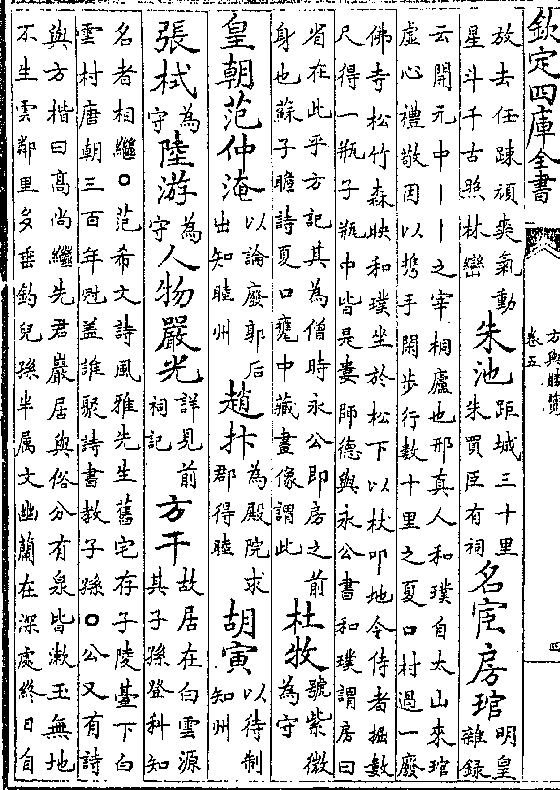 欽定四庫全書
方輿勝覽
卷五
四
放去任踈頑爽氣動
星斗千古照林巒
朱池
距城三十里
朱買臣有祠
名宦房琯
明皇
雜錄
云開元中｜｜之宰桐廬也邢真人和璞自太山來琯
虛心禮敬因以攜手閑步行數十里之夏口村過一廢
佛寺松竹森映和璞坐於松下以杖叩地令侍者掘數
尺得一瓶子瓶中皆是妻師德與永公書和璞謂房曰
省在此乎方記其為僧時永公即房之前
身也蘇子瞻詩夏口甕中藏畫像謂此
杜牧
號紫微
為守
皇朝范仲淹
以論廢郭后
出知睦州
趙抃
為殿院求
郡得睦
胡寅
以待制
知州
張栻
為
守
陸游
為
守
人物嚴光
詳見前
祠記
方干
故居在白雲源
其子孫登科知
名者相繼○范希文詩風雅先生舊宅存子陵臺下白
雲村唐朝三百年冠盖誰聚詩書教子孫○公又有詩
與方楷曰高尚繼先君巖居與俗分有泉皆漱玉無地
不生雲鄰里多垂釣兒孫半属文幽蘭在深處終日自